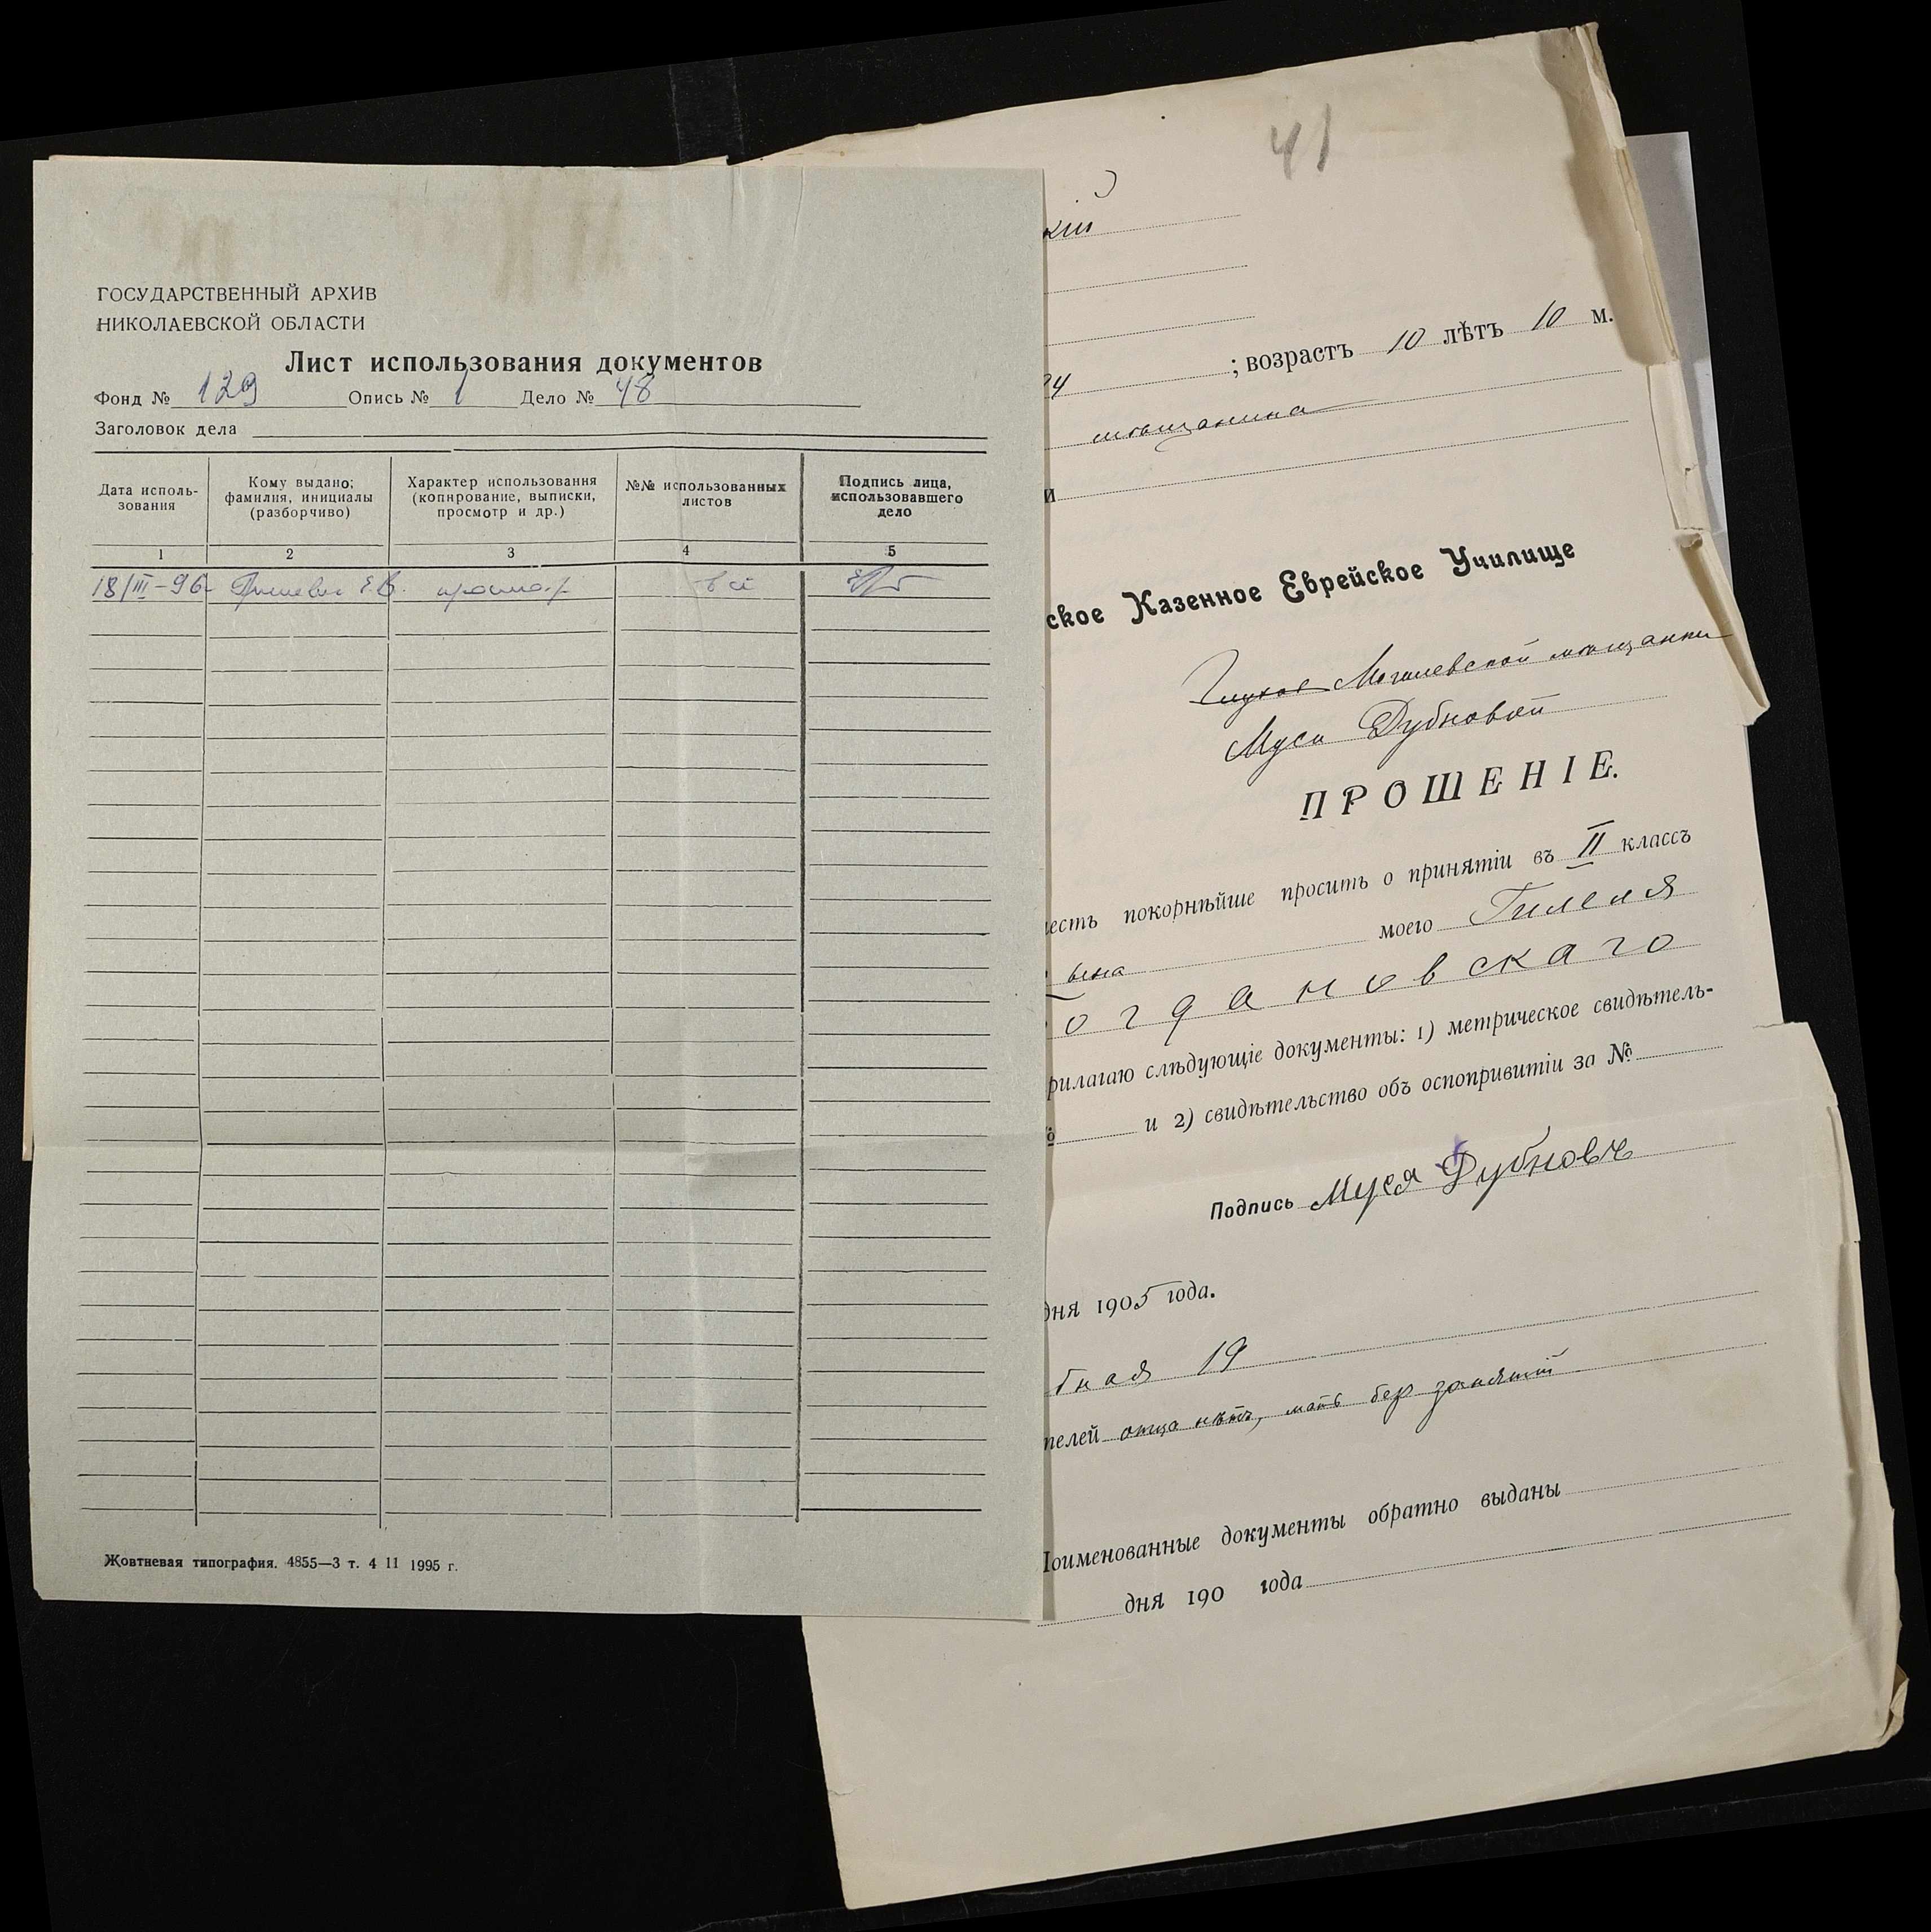 ГОСУДАРСТВЕННЫЙ АРХИВ
НИКОЛАЕВСКОЙ ОБЛАСТИ
Лист использования документов
Фонд № 129 Опись № 1 Дело № 48
Заголовок дела
Дата исполь-
зования
Кому выдано;
фамилия, инициалы
(разборчиво)
Характер использования
(копирование, выписки,
просмотр и др.)
№№ использованных
листов
Подпись лица,
использовавшего
дело
1 2 3 4 5
18/III-96 Е.В.
Жовтневая типография. 4855—3 т. 4 11 1995 г.
41
кій
; возрастъ 10 лѣтъ 10 м.
мѣщанина
и
ское Казенное Еврейское Училище
Могилевской мѣщанки
Муси Дубновой
ПРОШЕНІЕ.
есть покорнѣйше просить о принятіи въ II классъ
моего Гилеля
огдановскаго
рилагаю слѣдующіе документы: 1) метрическое свидѣтель-
и 2) свидѣтельство объ оспопривитіи за №
Подпись Муся Дубновъ
дня 1905 года.
бная 19
телей отца нѣтъ, мать без занятій
Поименованные документы обратно выданы
дня 190 года